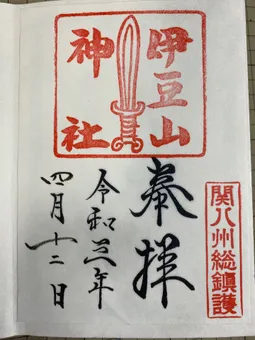 伊豆山
神社
関八州総鎮護
奉拝
令和三年
四月十二日